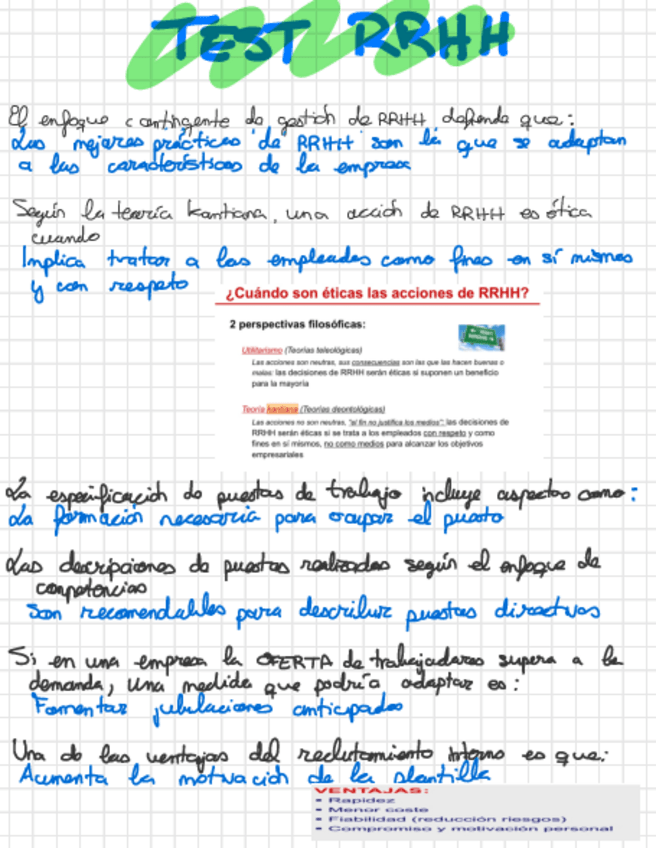 TEST RRHH
El enfoque contingente de gestión de RRHH defiende que:
Las mejores prácticas de RRHH son la que se adaptan
a las características de la empresa
Según la teoría kantiana, una acción de RRHH es ética
cuando
Implica tratar a los empleados como fines en sí mismos
y con respeto
¿Cuándo son éticas las acciones de RRHH?
2 perspectivas filosóficas:
Utilitarismo (Teorías teleológicas)
Las acciones son neutras, sus consecuencias son las que las hacen buenas o
malas: las decisiones de RRHH serán éticas si suponen un beneficio
para la mayoría
Teoría kantiana (Teorías deontológicas)
Las acciones no son neutras, "el fin no justifica los medios": las decisiones de
RRHH serán éticas si se trata a los empleados con respeto y como
fines en sí mismos, no como medios para alcanzar los objetivos
empresariales
La especificación de puestos de trabajo incluye aspectos como:
La formación necesaria para ocupar el puesto
Las descripciones de puestos realizadas según el enfoque de
competencias
Son recomendables para describir puestos directivos
Si en una empresa la OFERTA de trabajadores supera a la
demanda, una medida que podría adoptar es:
Fomentar jubilaciones anticipadas
Una de las ventajas del reclutamiento interno es que:
Aumenta la motivación de la plantilla
VENTAJAS:
• Rapidez
• Menor coste
• Fiabilidad (reducción riesgos)
• Compromiso y motivación personal